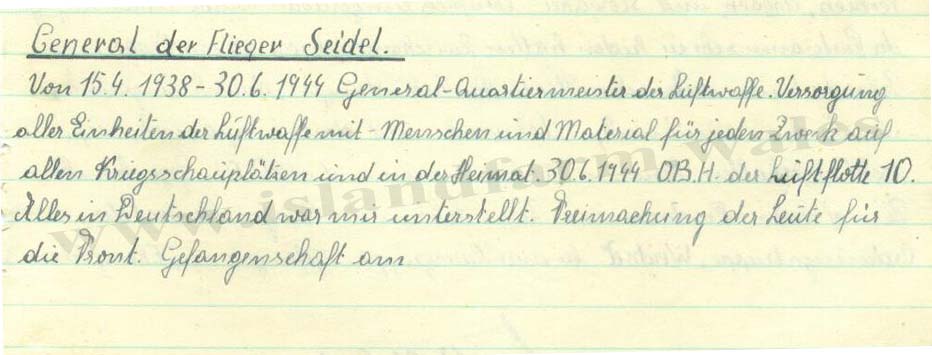 General der Flieger Seidel.
Von 15.4. 1938 - 30.6. 1944 General-Quartiermeister der Luftwaffe. Versorgung
aller Einheiten der Luftwaffe mit - Menschen und Material für jeden Zweck auf
allen Kriegsschauplätzen und in der Heimat. 30.6.1944 O.B.H. der Luftflotte 10.
Alles in Deutschland war mir unterstellt. Freimachung der Leute für
die Front. Gefangenschaft am
www.islandfarm.Wales